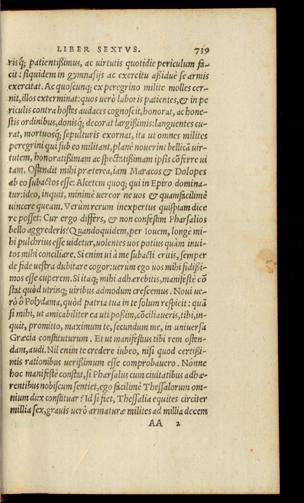 LIBER SEXTVS. 739
risq́; patientißimus, ac virtutis quotidie periculum fa-
cit: siquidem in gymnasijs ac exercitu aßiduè se armis
exercitat. Ac quoscunq; ex peregrino milite molles cer-
nit, illos exterminat: quos verò laboris patientes, & in pe
riculis contra hostes audaces cognoscit, honorat, ac hone-
stis ordinibus, donisq́; decorat largißimis: languentes cu-
rat, mortuosq́; sepulturis exornat, ita ut omnes milites
peregrini qui sub eo militant, planè nouerint bellicâ vir-
tutem, honoratißimam ac spectatißimam ipsis cõferre ui
tam. Ostendit mihi præterea, iam Maracos & Dolopes
ab eo subactos esse: Alcetem quoq;, qui in Epiro domina-
tur: ideo, inquit, minimè vereor ne uos & quamfacilimè
vincere queam. Verùm rerum inexpertus quispiam dice
re posset: Cur ergo differs, & non confestim Pharsalios
bello aggrederis? Quandoquidem, per Iouem, longè mi-
hi pulchrius esse uidetur, uolentes uos potius quàm inui-
tos mihi conciliare. Si enim ui à me subacti eritis, semper
de fide uestra dubitare cogor: uerùm ego uos mihi fidißi-
mos esse cuperem. Si itaq; mihi adhærebitis, manifestè cõ
stat quòd utrinq; uiribus admodum crescemus. Noui ue-
rò ô Polydama, quòd patria tua in te solum respicit: quâ
si mihi, ut amicabiliter ea uti poßim, cõciliaueris, tibi, in-
quit, promitto, maximum te, secundum me, in uniuersa
Græcia constituturum. Et ut manifestius tibi rem osten-
dam, audi. Nil enim te credere iubeo, nisi quod certißi-
mis rationibus uerißimum esse comprobauero. Nonne
hoc manifestè constat, si Pharsalus cum ciuitatibus adhæ-
rentibus nobiscum sentiet, ego facilimè Thessalorum om-
nium dux constituar? Id si fiet, Thessalia equites circiter
millia sex, grauis uerò armaturæ milites ad millia decem
AA 2